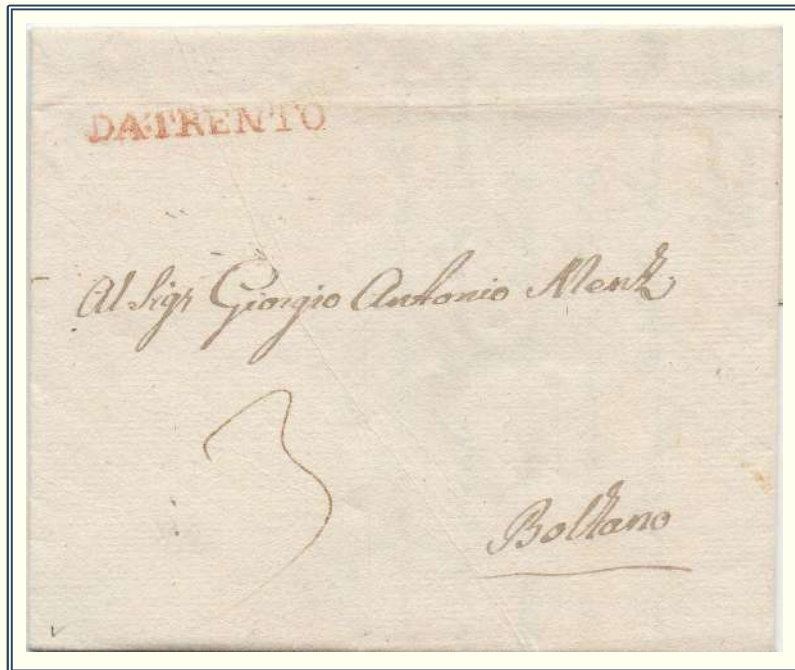 DA TRENTO
Al Sigr Giorgio Antonio Menz
3
Bolzano